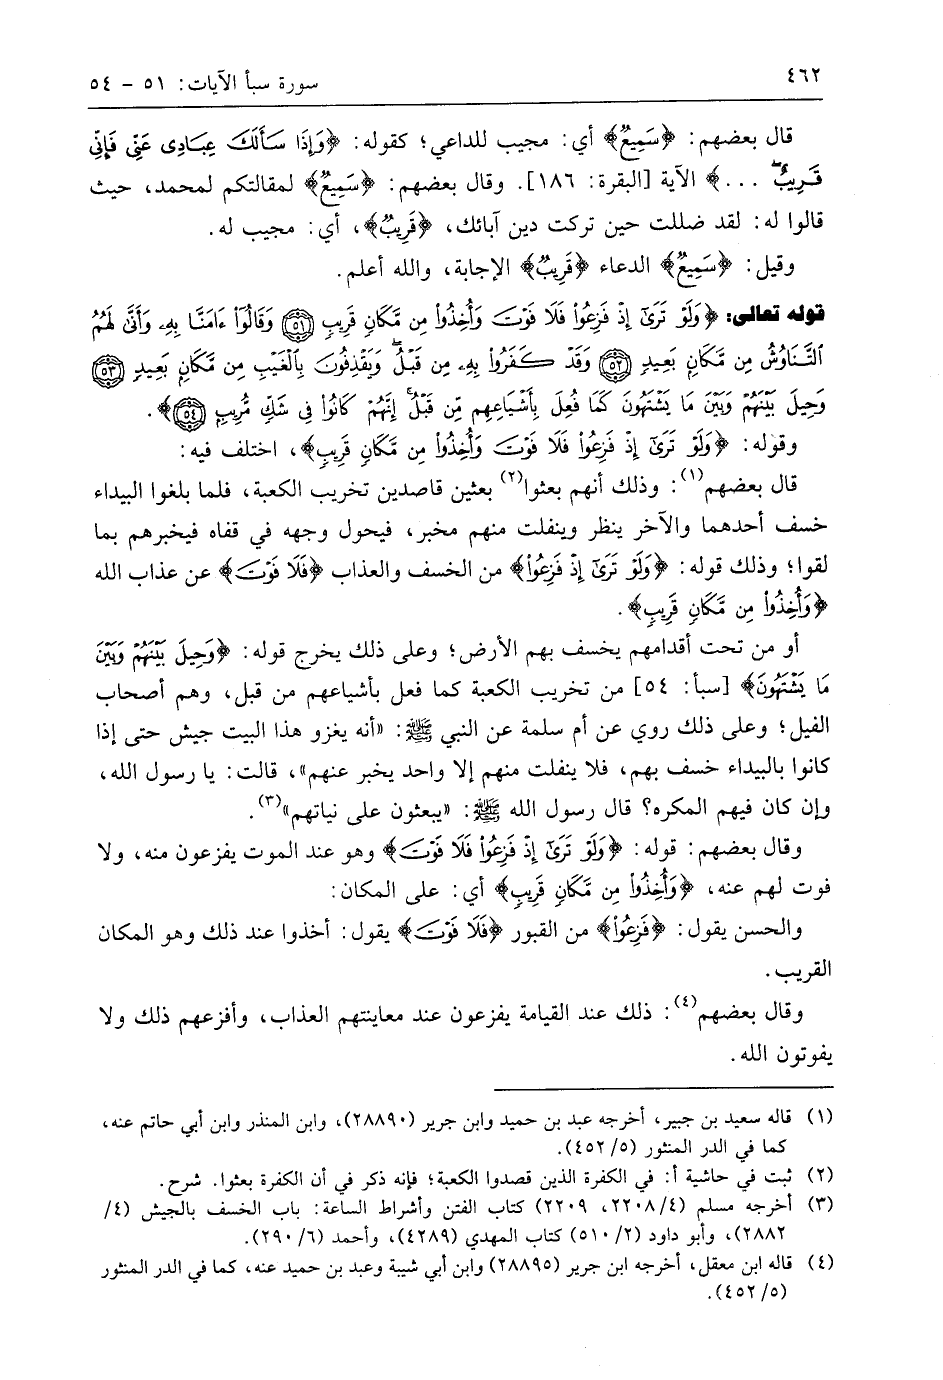 ٤٦٢
سورة سبأ الآيات: ٥١ - ٥٤
قال بعضهم: ﴿سَمِيعٌ﴾ أي: مجيب للداعي؛ كقوله: ﴿وَإِذَا سَأَلَكَ عِبَادِى عَنِّى فَإِنِّى
قَرِيبٌ ...﴾ الآية [البقرة: ١٨٦]. وقال بعضهم: ﴿سَمِيعٌ﴾ لمقالتكم لمحمد، حيث
قالوا له: لقد ضللت حين تركت دين آبائك، ﴿قَرِيبٌ﴾، أي: مجيب له.
وقيل: ﴿سَمِيعٌ﴾ الدعاء ﴿قَرِيبٌ﴾ الإجابة، والله أعلم.
قوله تعالى: ﴿وَلَوْ تَرَىٰٓ إِذْ فَزِعُوا۟ فَلَا فَوْتَ وَأُخِذُوا۟ مِن مَّكَانٍ قَرِيبٍ ۝٥١ وَقَالُوٓا۟ ءَامَنَّا بِهِۦ وَأَنَّىٰ لَهُمُ
ٱلتَّنَاوُشُ مِن مَّكَانٍۭ بَعِيدٍ ۝٥٢ وَقَدْ كَفَرُوا۟ بِهِۦ مِن قَبْلُ ۖ وَيَقْذِفُونَ بِٱلْغَيْبِ مِن مَّكَانٍۭ بَعِيدٍ ۝٥٣
وَحِيلَ بَيْنَهُمْ وَبَيْنَ مَا يَشْتَهُونَ كَمَا فُعِلَ بِأَشْيَاعِهِم مِّن قَبْلُ ۚ إِنَّهُمْ كَانُوا۟ فِى شَكٍّ مُّرِيبٍۭ ۝٥٤﴾.
وقوله: ﴿وَلَوْ تَرَىٰٓ إِذْ فَزِعُوا۟ فَلَا فَوْتَ وَأُخِذُوا۟ مِن مَّكَانٍ قَرِيبٍ﴾، اختلف فيه:
قال بعضهم(١): وذلك أنهم بعثوا(٢) بعثين قاصدين تخريب الكعبة، فلما بلغوا البيداء
خسف أحدهما والآخر ينظر وينفلت منهم مخبر، فيحول وجهه في قفاه فيخبرهم بما
لقوا؛ وذلك قوله: ﴿وَلَوْ تَرَىٰٓ إِذْ فَزِعُوا۟﴾ من الخسف والعذاب ﴿فَلَا فَوْتَ﴾ عن عذاب الله
﴿وَأُخِذُوا۟ مِن مَّكَانٍ قَرِيبٍ﴾.
أو من تحت أقدامهم يخسف بهم الأرض؛ وعلى ذلك يخرج قوله: ﴿وَحِيلَ بَيْنَهُمْ وَبَيْنَ
مَا يَشْتَهُونَ﴾ [سبأ: ٥٤] من تخريب الكعبة كما فعل بأشياعهم من قبل، وهم أصحاب
الفيل؛ وعلى ذلك روي عن أم سلمة عن النبي ﷺ: «أنه يغزو هذا البيت جيش حتى إذا
كانوا بالبيداء خسف بهم، فلا ينفلت منهم إلا واحد يخبر عنهم»، قالت: يا رسول الله،
وإن كان فيهم المكره؟ قال رسول الله ﷺ: «يبعثون على نياتهم»(٣).
وقال بعضهم: قوله: ﴿وَلَوْ تَرَىٰٓ إِذْ فَزِعُوا۟ فَلَا فَوْتَ﴾ وهو عند الموت يفزعون منه، ولا
فوت لهم عنه، ﴿وَأُخِذُوا۟ مِن مَّكَانٍ قَرِيبٍ﴾ أي: على المكان:
والحسن يقول: ﴿فَزِعُوا۟﴾ من القبور ﴿فَلَا فَوْتَ﴾ يقول: أخذوا عند ذلك وهو المكان
القريب.
وقال بعضهم(٤): ذلك عند القيامة يفزعون عند معاينتهم العذاب، وأفزعهم ذلك ولا
يفوتون الله.
(١) قاله سعيد بن جبير، أخرجه عبد بن حميد وابن جرير (٢٨٨٩٠)، وابن المنذر وابن أبي حاتم عنه،
كما في الدر المنثور (٥/ ٤٥٢).
(٢) ثبت في حاشية أ: في الكفرة الذين قصدوا الكعبة؛ فإنه ذكر في أن الكفرة بعثوا. شرح.
(٣) أخرجه مسلم (٤/ ٢٢٠٨، ٢٢٠٩) كتاب الفتن وأشراط الساعة: باب الخسف بالجيش (٤/
٢٨٨٢)، وأبو داود (٢/ ٥١٠) كتاب المهدي (٤٢٨٩)، وأحمد (٦/ ٢٩٠).
(٤) قاله ابن معقل، أخرجه ابن جرير (٢٨٨٩٥) وابن أبي شيبة وعبد بن حميد عنه، كما في الدر المنثور
(٥/ ٤٥٢).